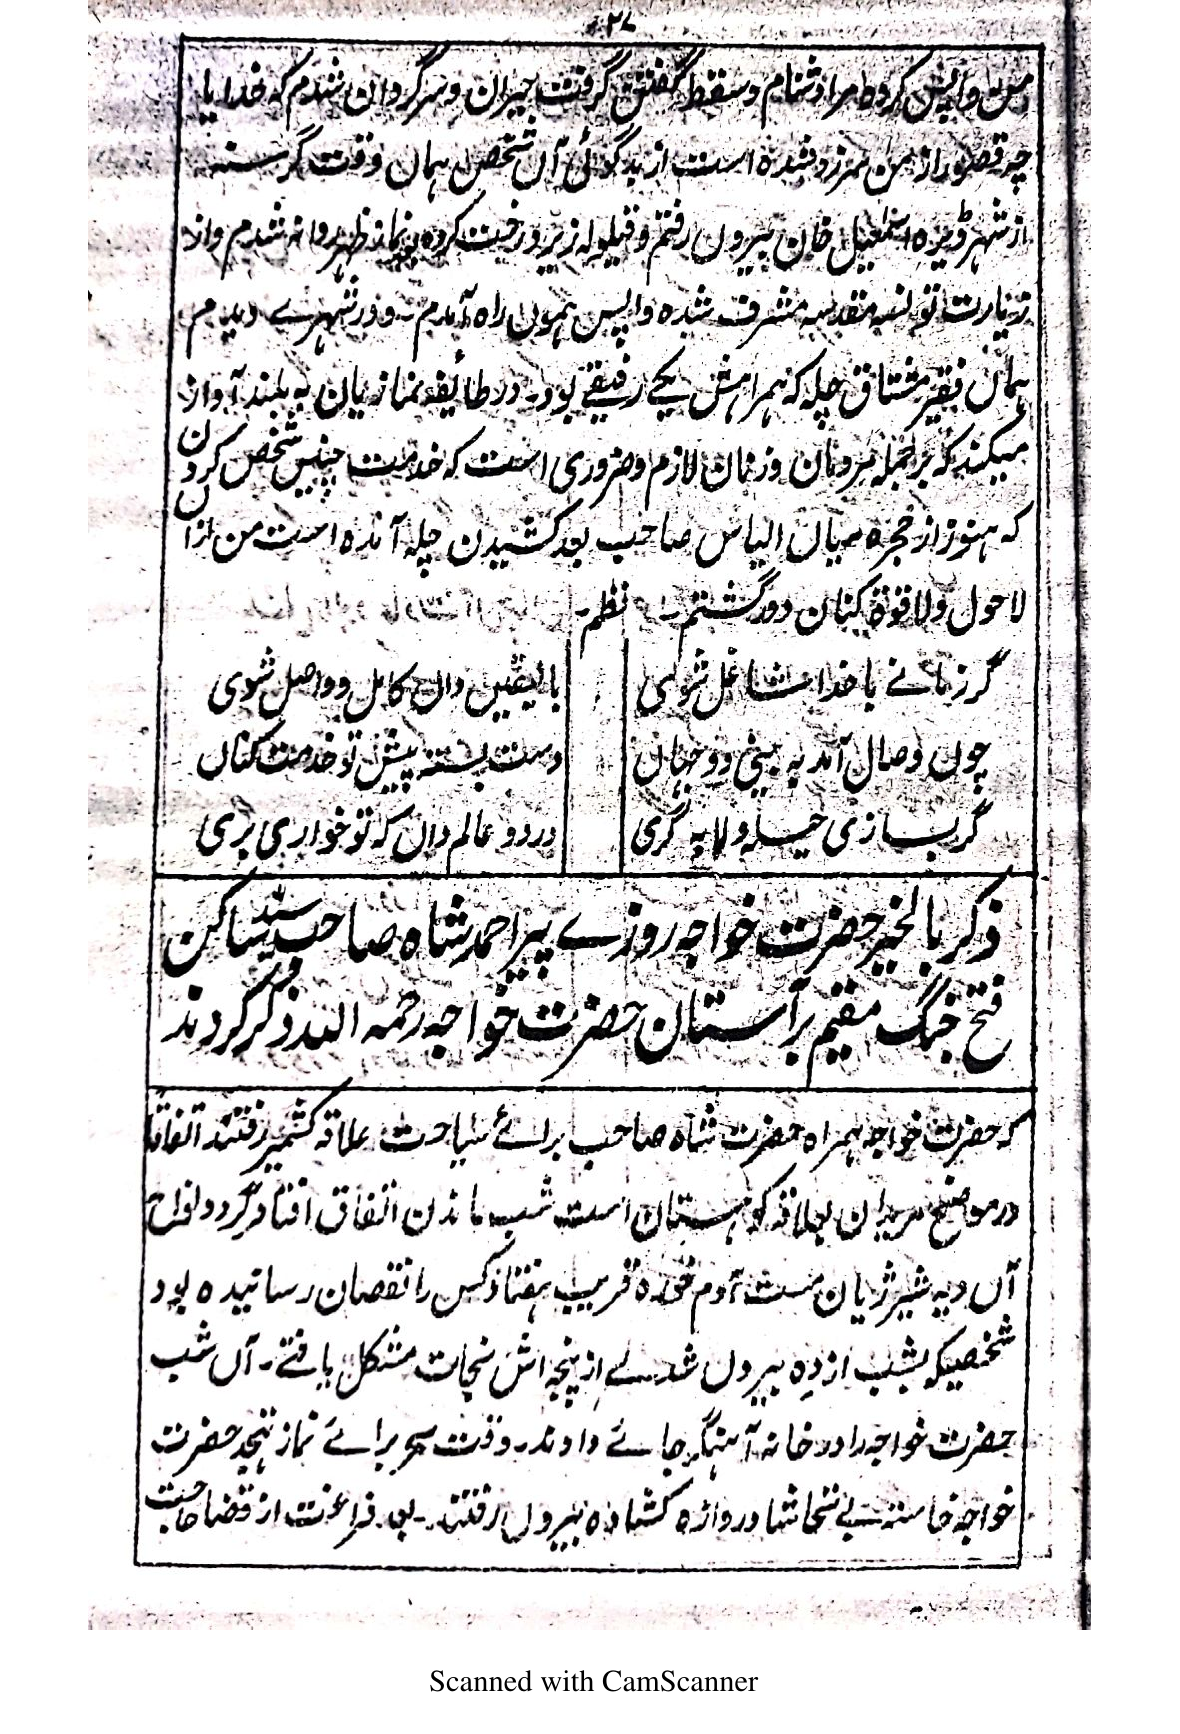 ۲۷
من واپس کرد و مرا دشنام و سقط گفتن گرفت حیران و سرگردان شدم که خدایا
چه قصور از من سرزد شده است از بدگوئی آں شخص ہماں وقت گرسنہ
از شہر ڈیرہ اسمٰعیل خان بیروں رفتم و قیلولہ زیر درخت کردہ نماز ظہر روانہ شدم واز
زیارت تونسہ مقدسہ مشرف شدہ واپس ہموں راہ آمدم۔ ودر شہرے دیدم
ہماں فقیر مشتاق چلہ کہ ہمراہش یکے رفیقے بود۔ در طائفہ نمازیان بہ بلند آواز
میکند کہ بر جملہ مردمان وزنان لازم وضروری است کہ خدمت چنیں شخص کردن
کہ ہنوز از حجرہ میاں الیاس صاحب بعد کشیدن چلہ آمدہ است من ازاں
لا حول ولا قوۃ کناں دور گشتم۔ نظم۔
گر زمانے با خدا شاغل شوی بالیقیں داں کامل و واصل شوی
چوں وصال آمد بہ بینی دو جہاں دست بستہ پیش تو خدمت کناں
گر بسازی حیلہ ولابہ گری در دو عالم داں کہ تو خواری بری
ذکر بالخیر حضرت خواجہ روزے پیر احمد شاہ صاحب سید ساکن
فتح جنگ مقیم بر آستان حضرت خواجہ رحمہ اللہ ذکر کردند
کہ حضرت خواجہ ہمراہ حضرت شاہ صاحب برائے سیاحت علاقہ کشمیر رفتند اتفاقاً
در موضع بعلاقہ کوہستان است شب ماندن اتفاق افتاد گرد و نواح
آں دیہ شیر ژیان مست آدم خورہ قریب ہفتاد کس را نقصان رسانیدہ بود
شخصیکہ بشب از دہ بیروں شدے از پنجہ اش نجات مشکل یافتے۔ آں شب
حضرت خواجہ را در خانہ آہنگر جائے دادند۔ وقت سحر برائے نماز تہجد حضرت
خواجہ خاستہ بے تحاشا دروازہ کشادہ بیروں رفتند۔ فراغت از قضا حاجت
Scanned with CamScanner